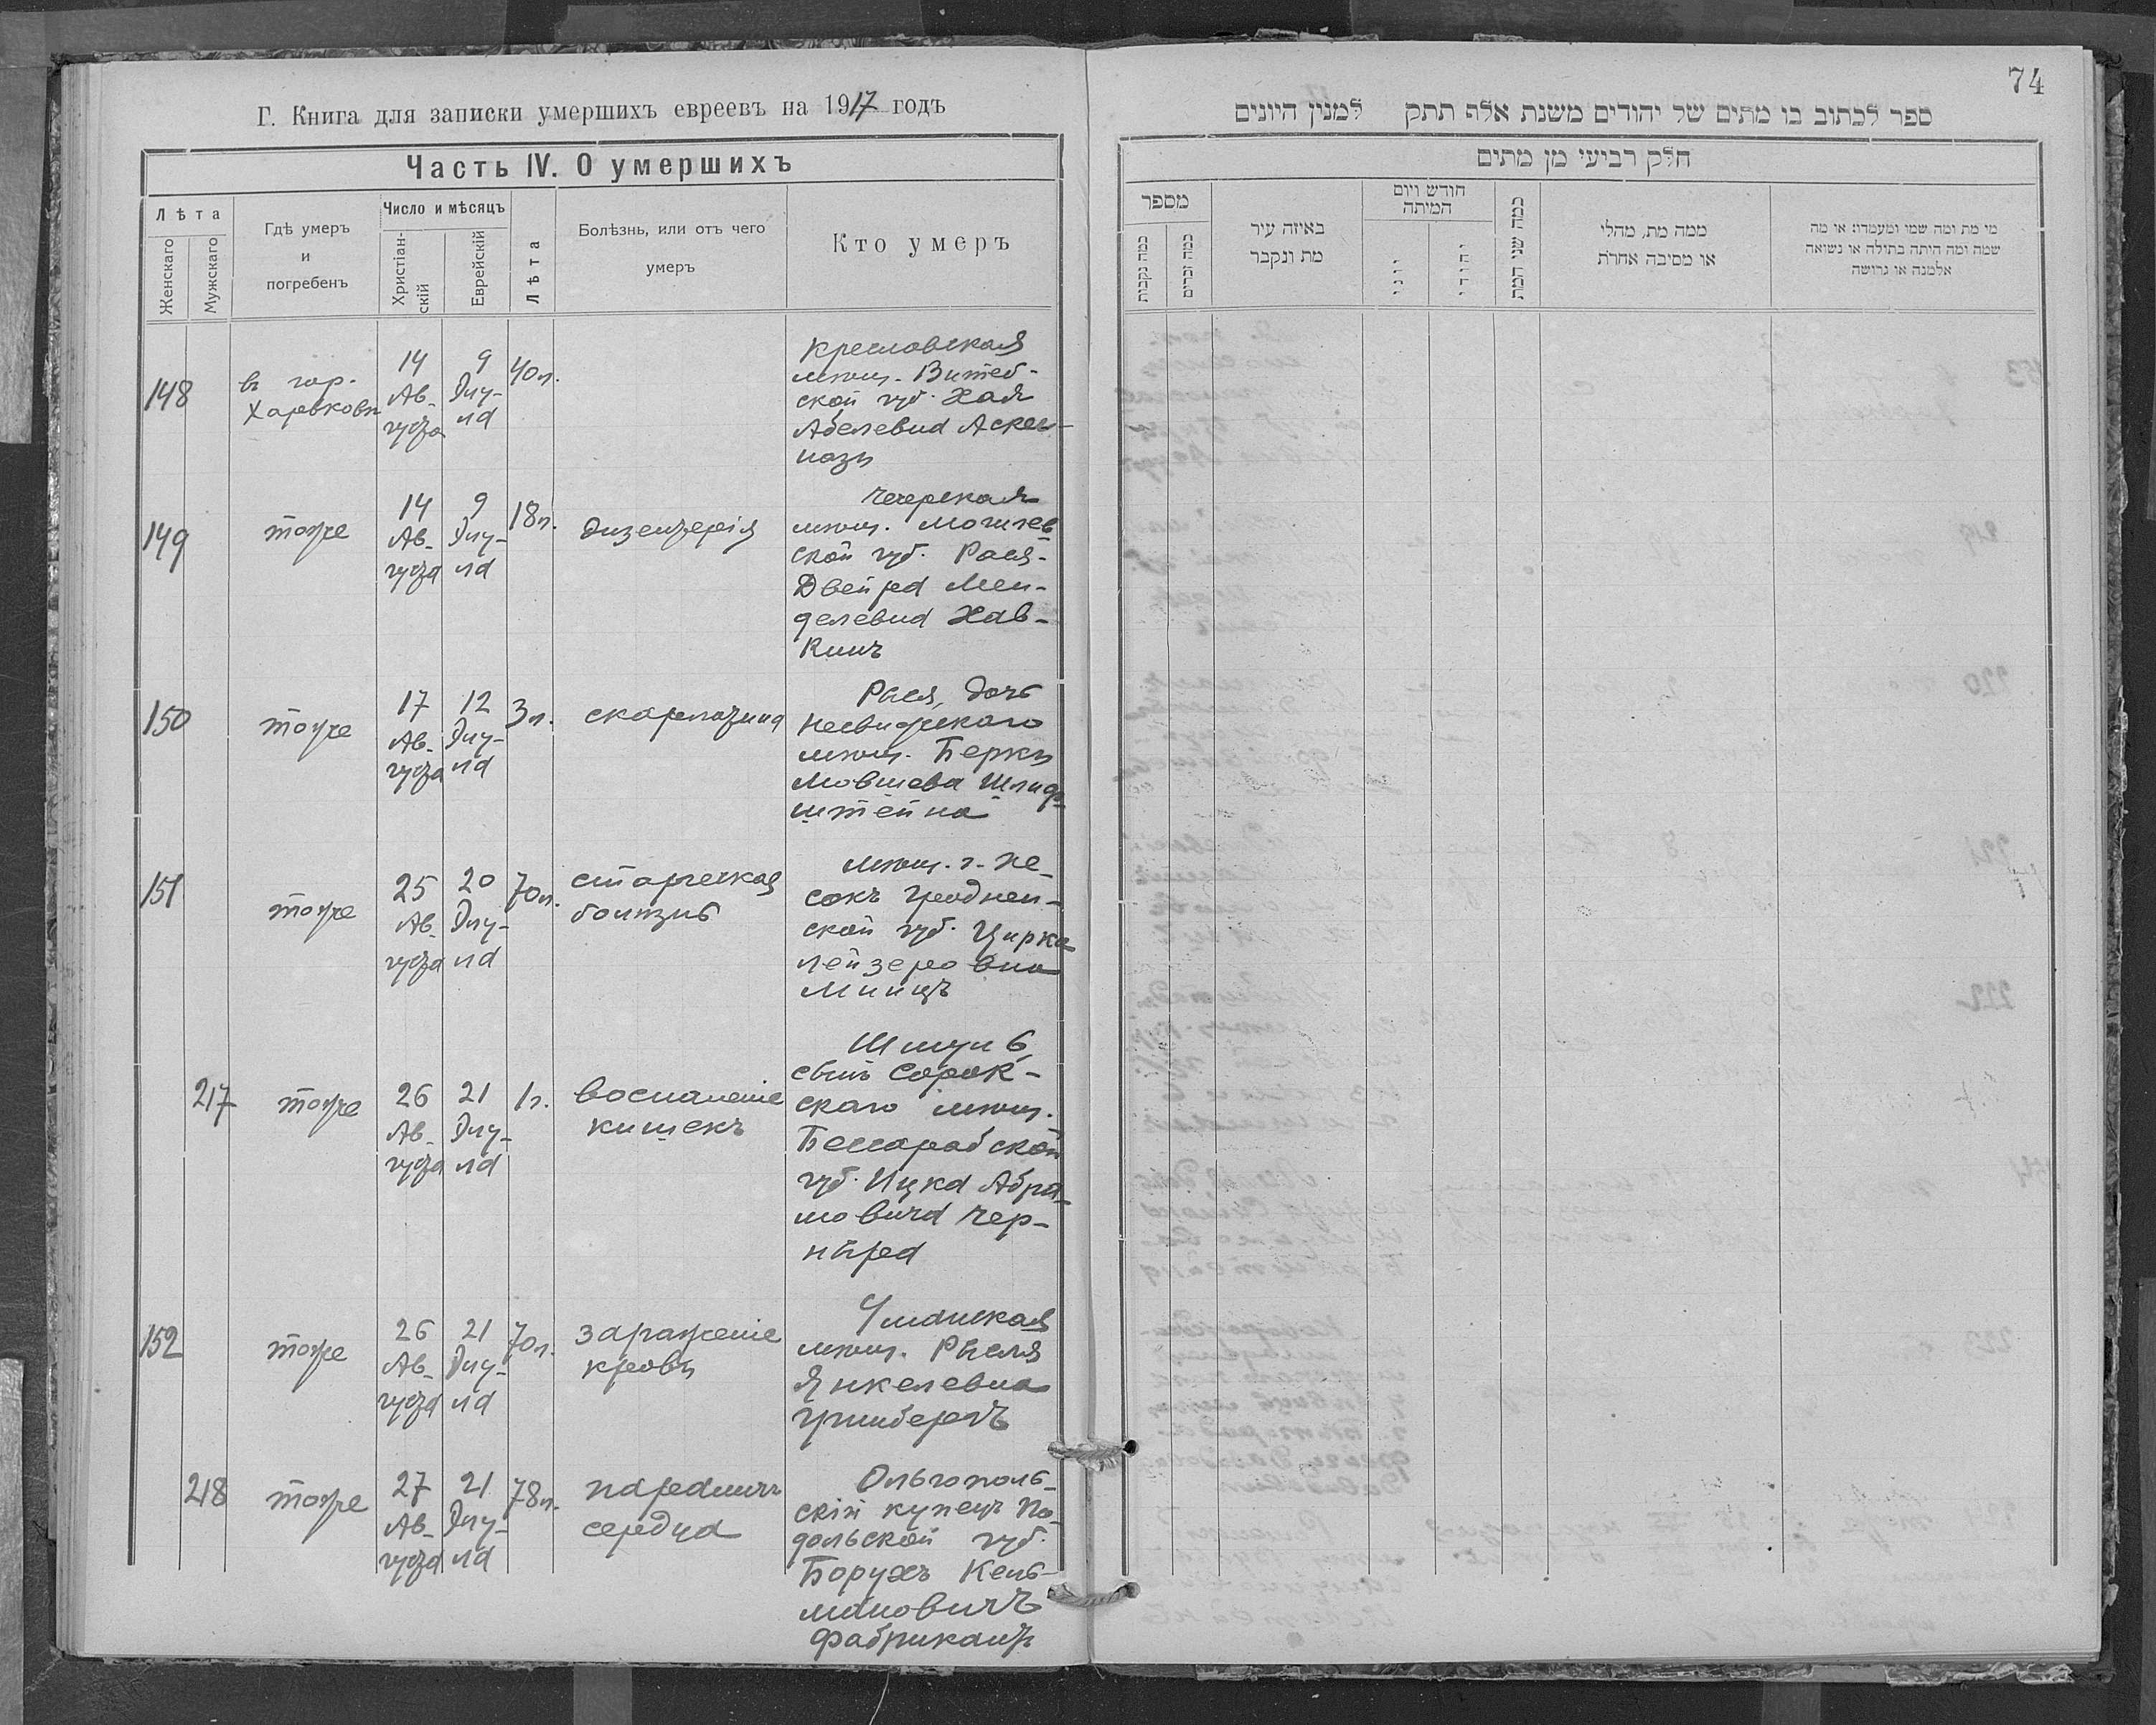 Г. Книга для записки умершихъ евреевъ на 1917 годъ
Часть IV. О умершихъ
Лѣта
Женскаго
Мужскаго
Гдѣ умеръ
и
погребенъ
Число и мѣсяцъ
Христіан-
скій
Еврейскій
Лѣта
Болѣзнь, или отъ чего
умеръ
Кто умеръ
148
въ гор.
Харьковѣ
14
Ав-
густа
9
Элу-
ла
40 л.
Креславская
мѣщ. Витеб-
ской губ. Хая
Абелевна Аскел-
нази
149
тоже
14
Ав-
густа
9
Элу-
ла
18 л.
дизентерія
Чечерская
мѣщ. Могилев
ской губ. Рася-
Двейра Мен-
делевна Хав-
кинъ
150
тоже
17
Ав-
густа
12
Элу-
ла
3 л.
скарлатина
Рися, дочь
Несвижскаго
мѣщ. Берки
Мовшева Шлиф-
штейна
151
тоже
25
Ав-
густа
20
Элу-
ла
70 л.
старческая
болѣзнь
мѣщ. г. Пе-
сокъ Гроднен-
ской губ. Цирка
Лейзеровна
Минцъ
217
тоже
26
Ав-
густа
21
Элу-
ла
1 г.
воспаленіе
кишекъ
Шмуль
сынъ Сорок-
скаго мѣщ.
Бессарабской
губ. Ицка Абра-
мовича Чер-
нѣра
152
тоже
26
Ав-
густа
21
Элу-
ла
70 л.
зараженіе
крови
Уманская
мѣщ. Рыся
Янкелевна
Гринбергъ
218
тоже
27
Ав-
густа
21
Элу-
ла
78 л.
параличъ
сердца
Ольгополь-
скій купецъ По-
дольской губ.
Борухъ Кель-
мановичъ
Фабрикантъ
74
ספר לכתוב בו מתים של יהודים משנת אלף תתק למנין היונים
חלק רביעי מן מתים
מספר
כמה נקבות
כמה זכרים
באיזה עיר
מת ונקבר
חודש ויום
המיתה
יוני
יהודי
כמה שני המת
ממה מת, מחלי
או מסיבה אחרת
מי מת ומה שמו ומעמדו: או מה
שמה ומה היתה בתולה או נשואה
אלמנה או גרושה